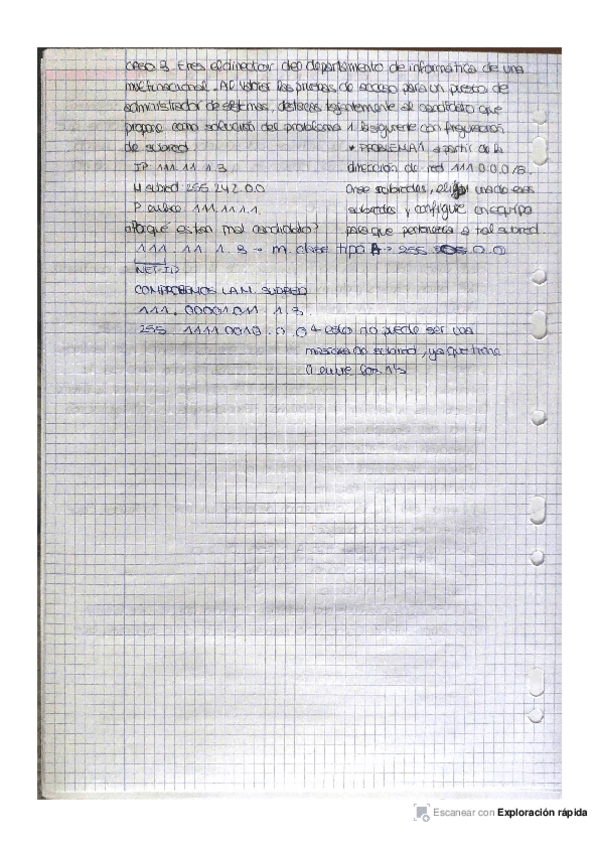 CASO 3 Eres el director del departamento de informática de una
multinacional. Al valorar las pruebas de acceso para un puesto de
administrador de sistemas, descartas tajantemente al candidato que
propone como solución del problema 1 la siguiente configuración
de subred
IP 111.11.1.3
M subred 255.242.0.0
P enlace 111.11.1.1.
¿Por qué es tan mal candidato?
* PROBLEMA 1. a partir de la
dirección de red 111.0.0.0/8.
Cree subredes, elija una de esas
subredes y configure un equipo
para que pertenezca a tal subred
111. 11. 1. 3 → m. clase tipo A → 255. 0.0
NET-ID
COMPROBEMOS LA M. SUBRED
111. 00001011 .1.3.
255. 11110010.0.0 esto no puede ser una
máscara de subred, ya que tiene
0 entre los 1's
Escanear con Exploración rápida